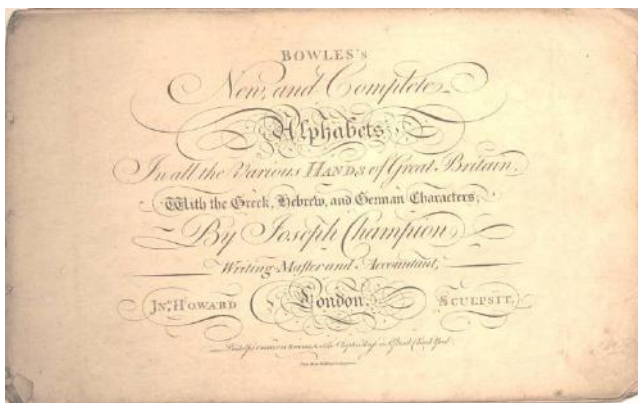 BOWLES's
New, and Complete
Alphabets
In all the Various HANDS of Great Britain,
With the Greek, Hebrew, and German Characters;
By Joseph Champion
Writing Master and Accountant,
JNº. HOWARD London. SCULPSIT.